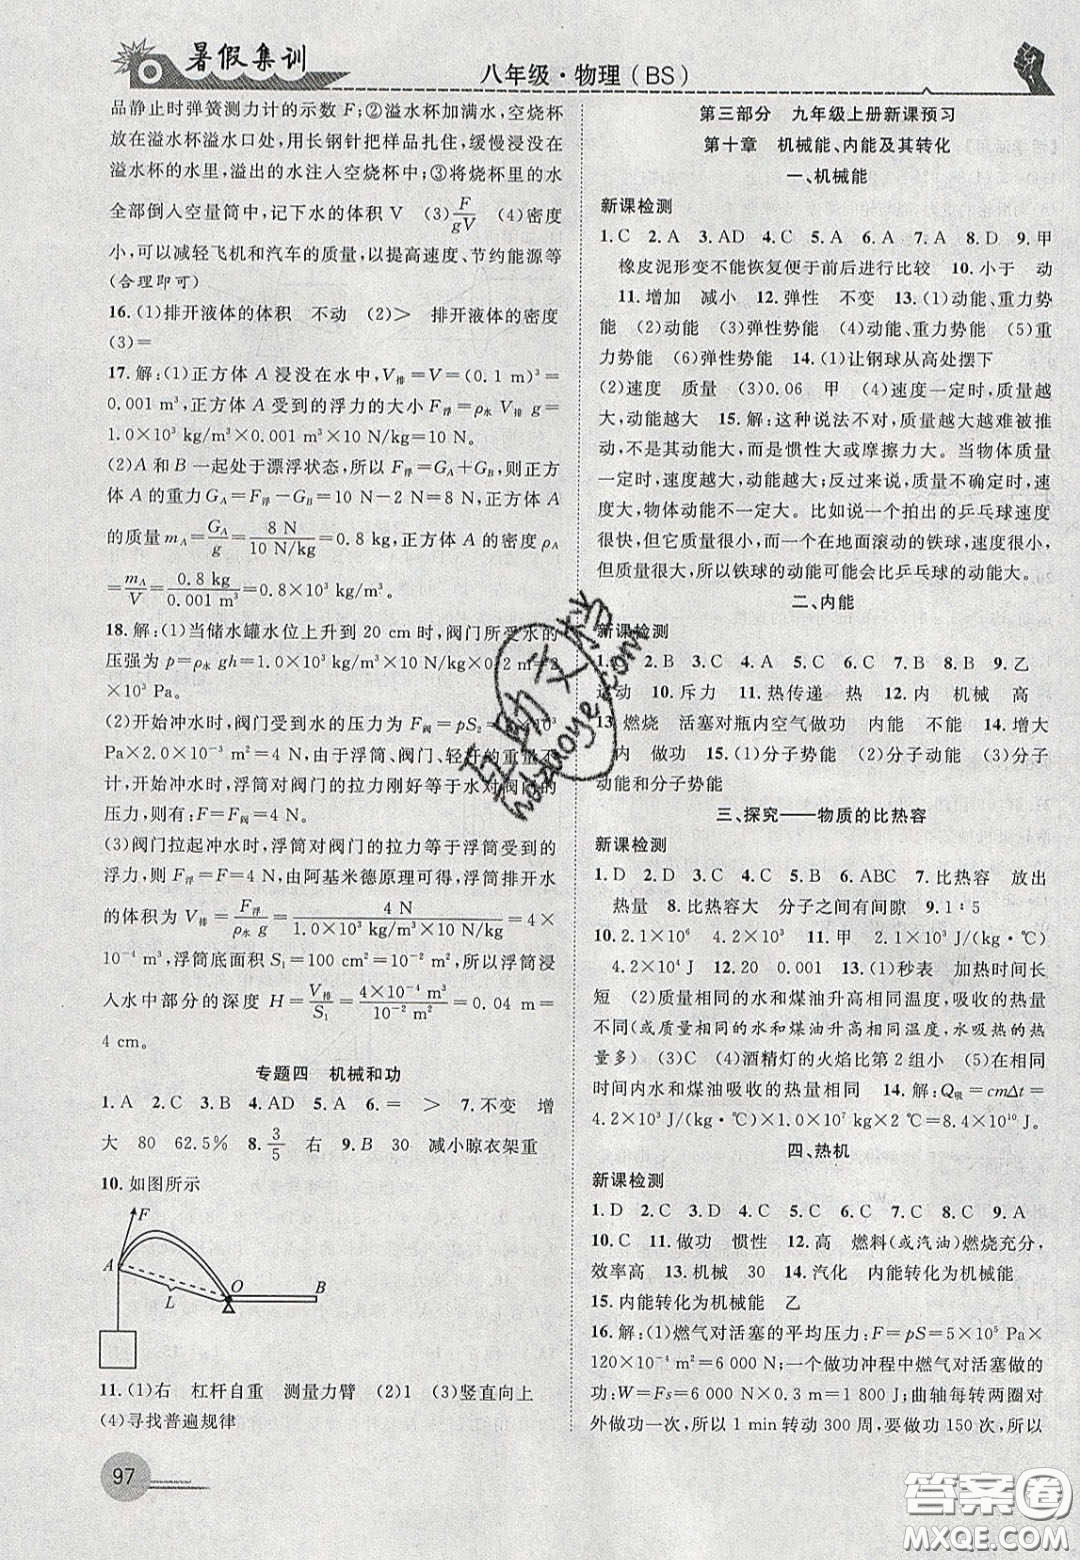 暑假集训
八年级·物理(BS)
品静止时弹簧测力计的示数 F;②溢水杯加满水,空烧杯
放在溢水杯溢水口处,用长钢针把样品扎住,缓慢浸没在
溢水杯的水里,溢出的水注入空烧杯中;③将烧杯里的水
全部倒入空量筒中,记下水的体积 V (3)F/gV (4)密度
小,可以减轻飞机和汽车的质量,以提高速度、节约能源等
(合理即可)
16.(1)排开液体的体积 不动 (2)> 排开液体的密度
(3)=
17.解:(1)正方体 A 浸没在水中,V排=V=(0.1 m)³=
0.001 m³,正方体 A 受到的浮力的大小 F浮=ρ水 V排 g=
1.0×10³ kg/m³×0.001 m³×10 N/kg=10 N。
(2)A 和 B 一起处于漂浮状态,所以 F浮=GA+GB,则正方
体 A 的重力 GA=F浮-GB=10 N-2 N=8 N,正方体 A
的质量 mA=GA/g=8 N/10 N/kg=0.8 kg,正方体 A 的密度 ρA
=mA/V=0.8 kg/0.001 m³=0.8×10³ kg/m³。
18.解:(1)当储水罐水位上升到 20 cm 时,阀门所受水的
压强为 p=ρ水 gh=1.0×10³ kg/m³×10 N/kg×0.2 m=2
×10³ Pa。
(2)开始冲水时,阀门受到水的压力为 F阀=pS₂=2×10³
Pa×2.0×10⁻³ m²=4 N;由于浮筒、阀门、轻杆的重量不
计,开始冲水时,浮筒对阀门的拉力刚好等于水对阀门的
压力,则有:F=F阀=4 N。
(3)阀门拉起冲水时,浮筒对阀门的拉力等于浮筒受到的
浮力,则 F浮=F=4 N,由阿基米德原理可得,浮筒排开水
的体积为 V排=F浮/ρ水 g=4 N/1.0×10³ kg/m³×10 N/kg=4×
10⁻⁴ m³,浮筒底面积 S₁=100 cm²=10⁻² m²,所以浮筒浸
入水中部分的深度 H=V排/S₁=4×10⁻⁴ m³/10⁻² m²=0.04 m=
4 cm。
专题四 机械和功
1.A 2.C 3.B 4.AD 5.A 6.= > 7.不变 增
大 80 62.5% 8.3/5 右 9.B 30 减小晾衣架重
10.如图所示
F
A
O
B
L
11.(1)右 杠杆自重 测量力臂 (2)1 (3)竖直向上
(4)寻找普遍规律
97
第三部分 九年级上册新课预习
第十章 机械能、内能及其转化
一、机械能
新课检测
1.C 2.A 3.AD 4.C 5.A 6.A 7.A 8.D 9.甲
橡皮泥形变不能恢复便于前后进行比较 10.小于 动
11.增加 减小 12.弹性 不变 13.(1)动能、重力势
能 (2)动能 (3)弹性势能 (4)动能、重力势能 (5)重
力势能 (6)弹性势能 14.(1)让钢球从高处摆下
(2)速度 质量 (3)0.06 甲 (4)速度一定时,质量越
大,动能越大 15.解:这种说法不对,质量越大越难被推
动,不是其动能大,而是惯性大或摩擦力大。当物体质量
一定时,速度越大,动能越大;反过来说,质量不确定时,速
度大,物体动能不一定大。比如说一个拍出的乒乓球速度
很快,但它质量很小,而一个在地面滚动的铁球,速度很小,
但质量很大,所以铁球的动能可能会比乒乓球的动能大。
二、内能
新课检测
1.C 2.B 3.C 4.A 5.C 6.C 7.B 8.B 9.乙
运动 10.斥力 11.热传递 热 12.内 机械 高
13.燃烧 活塞对瓶内空气做功 内能 不能 14.增大
内 做功 15.(1)分子势能 (2)分子动能 (3)分子
动能和分子势能
三、探究——物质的比热容
新课检测
1.D 2.D 3.C 4.C 5.B 6.ABC 7.比热容 放出
热量 8.比热容大 分子之间有间隙 9.1∶5
10.2.1×10⁶ 4.2×10³ 11.甲 2.1×10³ J/(kg·℃)
4.2×10⁴ J 12.20 0.001 13.(1)秒表 加热时间长
短 (2)质量相同的水和煤油升高相同温度,吸收的热量
不同(或质量相同的水和煤油升高相同温度,水吸热的热
量多) (3)C (4)酒精灯的火焰比第 2 组小 (5)在相
同时间内水和煤油吸收的热量相同 14.解:Q吸=cmΔt=
4.2×10³ J/(kg·℃)×1.0×10⁷ kg×2℃=8.4×10¹⁰ J。
四、热机
新课检测
1.D 2.C 3.D 4.D 5.C 6.C 7.C 8.C 9.A
10.C 11.做功 惯性 12.高 燃料(或汽油)燃烧充分,
效率高 13.机械 30 14.汽化 内能转化为机械能
15.内能转化为机械能 乙
16.解:(1)燃气对活塞的平均压力:F=pS=5×10⁵ Pa×
120×10⁻⁴ m²=6 000 N;一个做功冲程中燃气对活塞做的
功:W=Fs=6 000 N×0.3 m=1 800 J;曲轴每转两圈对
外做功一次,所以 1 min 转动 300 周,要做功 150 次,所以
互助文档
hdzuoye.com
答案圈
MXQE.COM